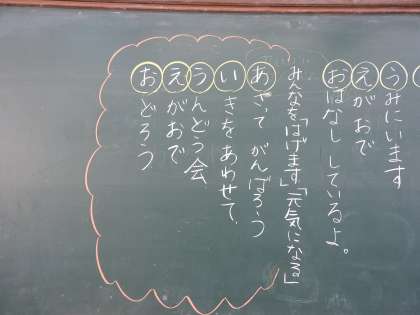 うみにいます
えがおで
おはなししているよ。
みんなを「はげます」「元気になる」
あさって がんばろう
いきをあわせて、
うんどう会、
えがおで
おどろう